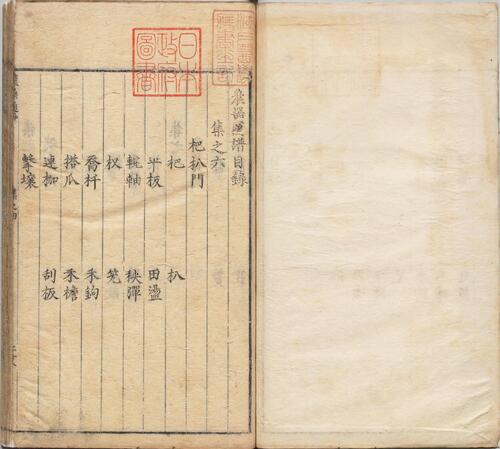 農器圖譜目錄
集之六
杷扒門
杷　扒
平板　田盪
輥軸　秧彈
杈　筅
喬扦　禾鉤
搭爪　禾檐
連枷　刮板
擊壤
日本
政府
圖書